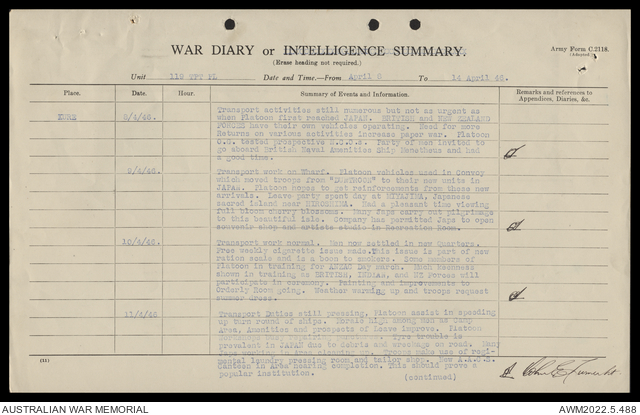 WAR DIARY or INTELLIGENCE SUMMARY.
(Erase heading not required.)
Army Form C.2118.
(Adapted)
Unit 119 TPT PL Date and Time.—From April 8 To 14 April 46.
Place. Date. Hour. Summary of Events and Information. Remarks and references to Appendices, Diaries, &c.
KURE 8/4/46. Transport activities still numerous but not as urgent as
when Platoon first reached JAPAN. BRITISH and NEW ZEALAND
FORCES have their own vehicles operating. Need for more
Returns on various activities increase paper war. Platoon
O.C. tested prospective N.C.O.s. Party of men invited to
go aboard British Naval Amenities Ship Menestheus and had
a good time.
9/4/46. Transport work on Wharf. Platoon vehicles used in Convoy
which moved troops from "DUNTROON" to their new units in
JAPAN. Platoon hopes to get reinforcements from these new
arrivals. Leave party spent day at MIYAJIMA, Japanese
sacred island near HIROSHIMA. Had a pleasant time viewing
full bloom cherry blossoms. Many Japs carry out pilgrimage
to this beautiful isle. Company has permitted Japs to open
souvenir shop and artists studio in Recreation Room.
10/4/46. Transport work normal. Men now settled in new Quarters.
Free weekly cigarette issue made. This issue is part of new
ration scale and is a boon to smokers. Some members of
Platoon in training for ANZAC Day march. Much keenness
shown in training as BRITISH, INDIAN, and NZ Forces will
participate in ceremony. Painting and improvements to
Orderly Room going. Weather warming up and troops request
summer dress.
11/4/46 Transport Duties still pressing. Platoon assist in speeding
up turn round of ships. Morale high among men as Camp
Area, Amenities and prospects of leave improve. Platoon
Tyre trouble is
prevalent in JAPAN due to debris and wreckage on road. Many
Japs working in area cleaning up. Troops make use of regi-
mental laundry pressing room and tailor shop. New A.A.C.S.
Canteen in Area nearing completion. This should prove a
popular institution. (continued)
AUSTRALIAN WAR MEMORIAL
AWM2022.5.488